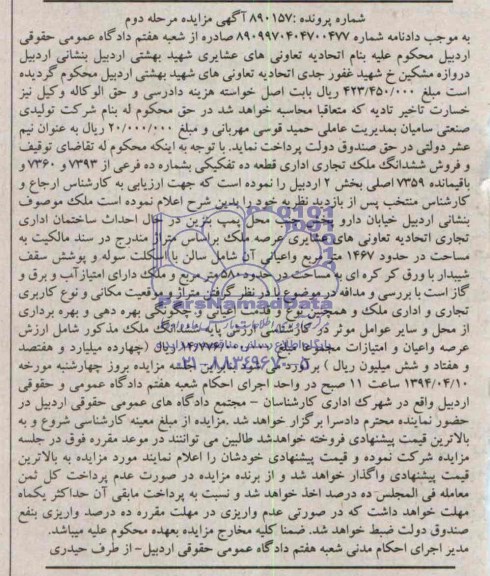 شماره پرونده :۸۹۰۱۵۷ آگهی مزایده مرحله دوم
به موجب دادنامه شماره ۸۹۰۹۹۷۰۴۰۴۷۰۰۴۷۷ صادره از شعبه هفتم دادگاه عمومی حقوقی
اردبیل محکوم علیه بنام اتحادیه تعاونی های عشایری شهید بهشتی اردبیل بنشانی اردبیل
دروازه مشکین خ شهید غفور جدی اتحادیه تعاونی های شهید بهشتی اردبیل محکوم گردیده
است مبلغ ۴۲۳/۴۵۰/۰۰۰ ریال بابت اصل خواسته هزینه دادرسی و حق الوکاله وکیل نیز
خسارت تاخیر تادیه که متعاقبا محاسبه خواهد شد در حق محکوم له بنام شرکت تولیدی
صنعتی سامیان بمدیریت عاملی حمید قوسی مهربانی و مبلغ ۲۰/۰۰۰/۰۰۰ ریال به عنوان نیم
عشر دولتی در حق صندوق دولت پرداخت نماید. با توجه به اینکه محکوم له تقاضای توقیف
و فروش ششدانگ ملک تجاری اداری قطعه ده تفکیکی بشماره ده فرعی از ۷۳۹۳ و ۷۳۶۰ و
باقیمانده ۷۳۵۹ اصلی بخش ۲ اردبیل را نموده است که جهت ارزیابی به کارشناس ارجاع و
کارشناس منتخب پس از بازدید نظریه خود را بدین شرح اعلام نموده است ملک موصوف
بنشانی اردبیل خیابان دارو پخش جنب محل پمپ بنزین در حال احداث ساختمان اداری
تجاری اتحادیه تعاونی های عشایری عرصه ملک براساس متراژ مندرج در سند مالکیت به
مساحت در حدود ۱۴۶۷ متر مربع واعیانی آن شامل سالن با اسکلت سوله و پوشش سقف
شیبدار با ورق کرکره ای به مساحت در حدود ۵۸۰ متر مربع و ملک دارای امتیاز آب و برق و
گاز است با بررسی و مداقه در موضوع با در نظر گرفتن متراژ و موقعیت مکانی و نوع کاربری
تجاری و اداری ملک و همچنین نوع و قدمت اعیانی و چگونگی بهره دهی و بهره برداری
از محل و سایر عوامل موثر در کارشناسی ارزش پایه ششدانگ ملک مذکور شامل ارزش
عرصه واعیان و امتیازات مجموعا مبلغ ریال (چهارده میلیارد و هفتصد
و هفتاد و شش میلیون ریال ) برآورد می شود جلسه مزایده بروز چهارشنبه مورخه
۱۳۹۴/۰۴/۱۰ ساعت ۱۱ صبح در واحد اجرای احکام شعبه هفتم دادگاه عمومی و حقوقی
اردبیل واقع در شهرک اداری کارشناسان - مجتمع دادگاه های عمومی حقوقی اردبیل در
حضور نماینده محترم دادسرا برگزار خواهد شد .مزایده از مبلغ معینه کارشناسی شروع و به
بالاترین قیمت پیشنهادی فروخته خواهدشد طالبین می توانند در موعد مقرره فوق در جلسه
مزایده شرکت نموده و قیمت پیشنهادی خودشان را اعلام نمایند مورد مزایده به بالاترین
قیمت پیشنهادی واگذار خواهد شد و از برنده مزایده در صورت عدم پرداخت کل ثمن
معامله فی المجلس ده درصد اخذ خواهد شد و نسبت به پرداخت مابقی آن حداکثر یکماه
مهلت خواهد داشت که در صورتی عدم واریزی در مهلت مقرره ده درصد واریزی بنفع
صندوق دولت ضبط خواهد شد. ضمنا کلیه مخارج مزایده بعهده محکوم علیه میباشد.
مدیر اجرای احکام مدنی شعبه هفتم دادگاه عمومی حقوقی اردبیل- از طرف حیدری
ParsNamadData
۰۲۱-۸۸۳۴۹۶۷۰-۵